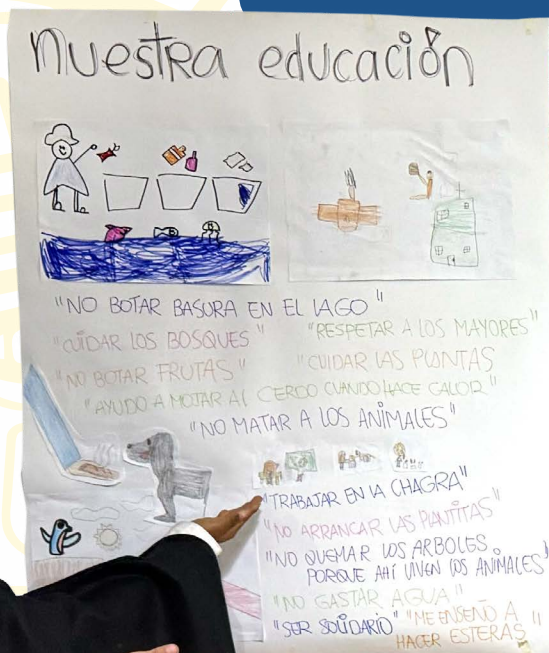 nuestra educación
"NO BOTAR BASURA EN EL LAGO"
"CUIDAR LOS BOSQUES" "RESPETAR A LOS MAYORES"
"NO BOTAR FRUTAS" "CUIDAR LAS PLANTAS
"AYUDO A MOJAR AL CERDO CUANDO HACE CALOR"
"NO MATAR A LOS ANIMALES"
"TRABAJAR EN LA CHAGRA"
"NO ARRANCAR LAS PLANTITAS"
"NO QUEMAR LOS ARBOLES
PORQUE AHÍ VIVEN LOS ANIMALES"
"NO GASTAR AGUA"
"SER SOLIDARIO" "ME ENSEÑÓ A
HACER ESTERAS"